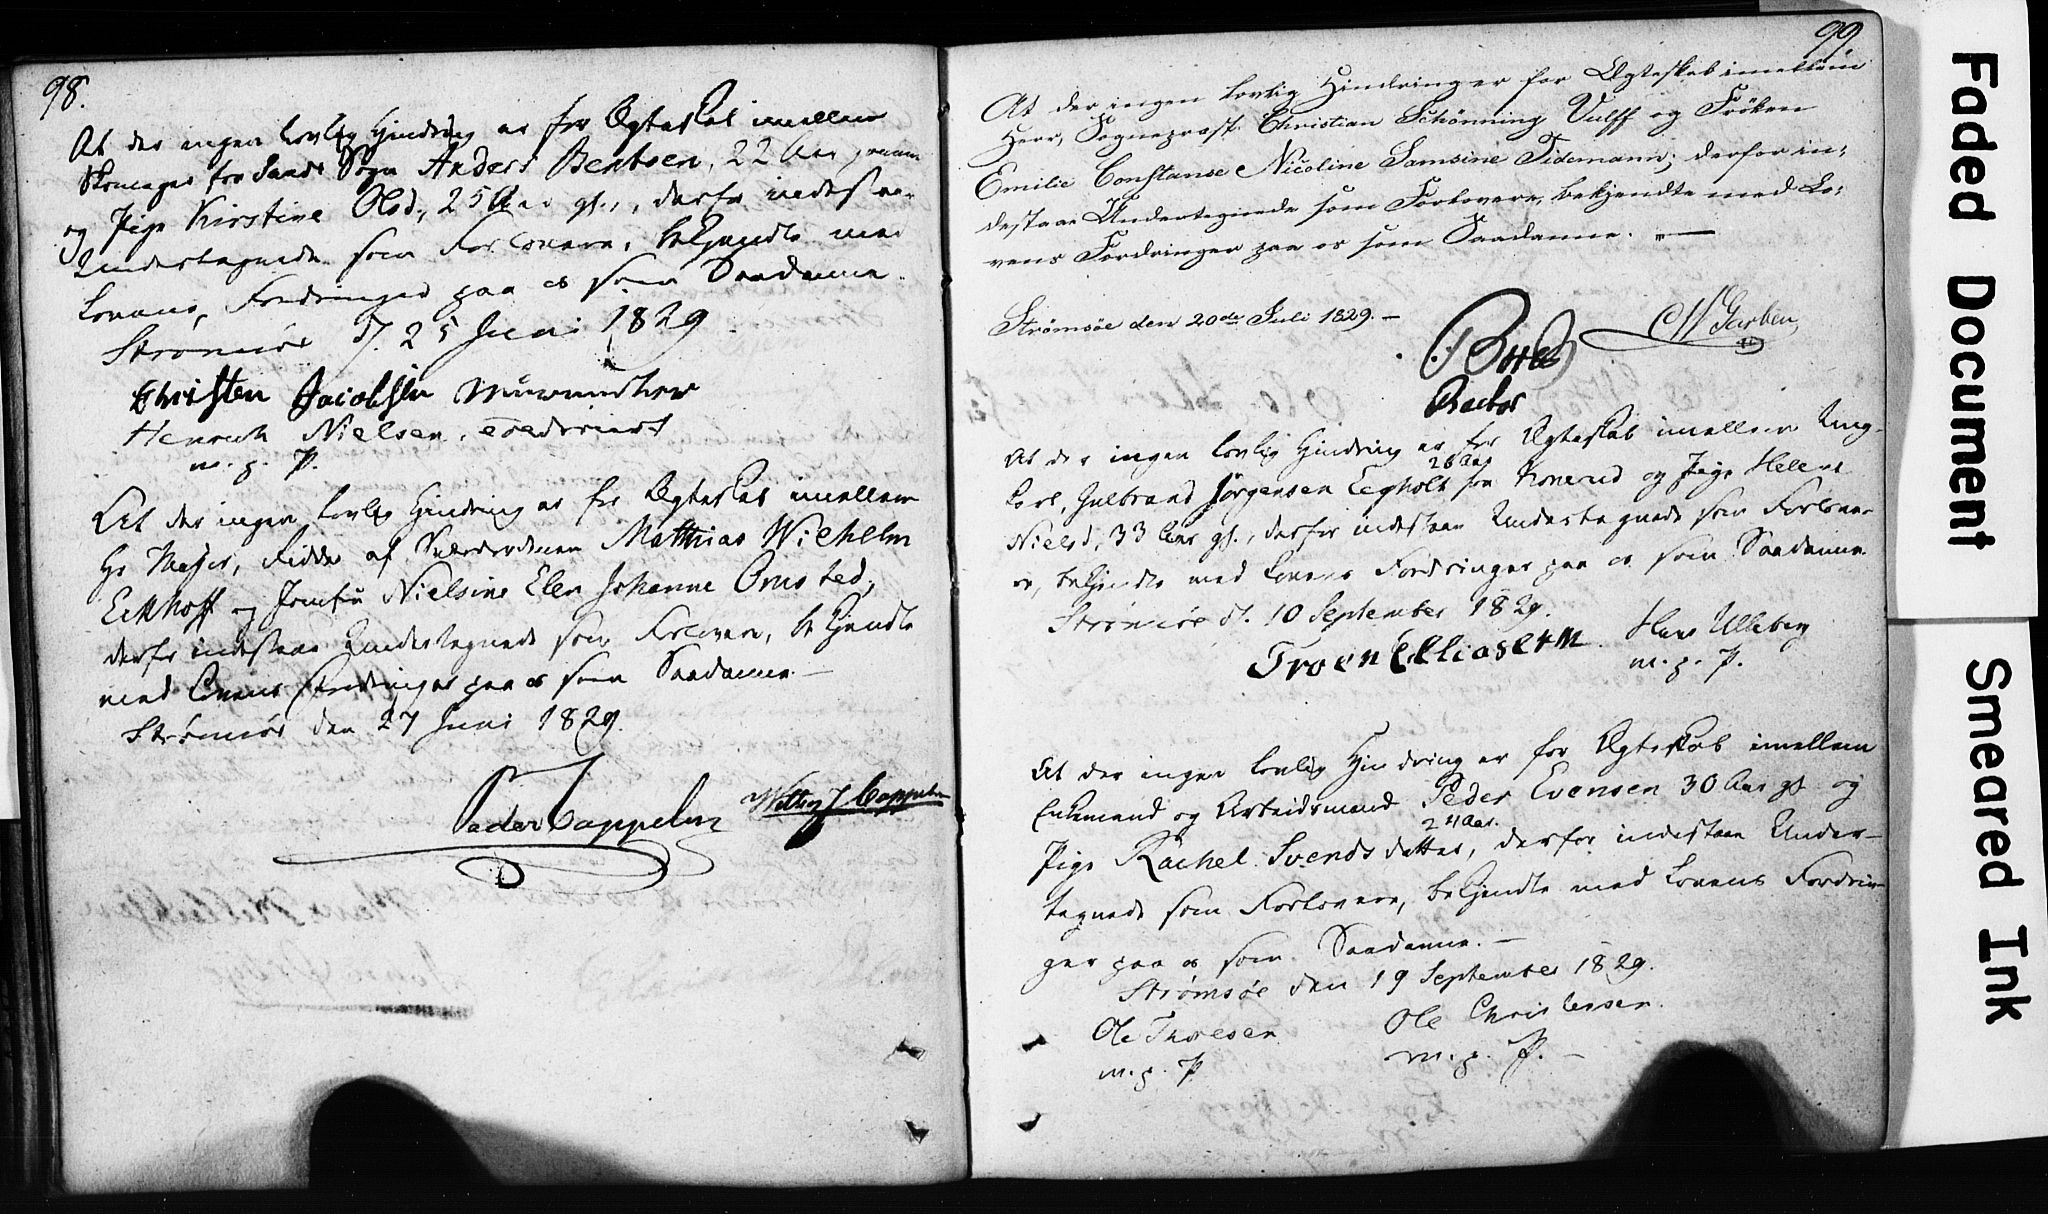 98.
At der ingen lovlig Hindring er for Ægteskab imellem
Skomager fra Sande Sogn Anders Bentsen, 22 Aar gammel
og Pige Kirstine Olsd., 25 Aar gl., derfor indestaae
Undertegnede som Forlovere, bekjendte med
Lovens Fordringer paa os som Saadanne.
Strømsøe d. 25 Juni 1829.
Christen Jacobsen
Henrich Nielsen
m. p. P.
At der ingen lovlig Hindring er for Ægteskab imellem
Hr Major, Ridder af Sværdordenen Matthias Wilhelm
Eckhoff og Jomfru Nielsine Elen Johanne Omsted,
derfor indestaae Undertegnede som Forlovere, bekjendte
med Lovens Fordringer paa os som Saadanne. —
Strømsøe den 27 Juni 1829.
Peder Cappelen
Cappelen
99.
At der ingen lovlig Hindring er for Ægteskab imellem
Herr Sogneprest Christian Schönning Vulff og Frøken
Emilie Constanse Nicoline Samsine Tidemann; derfor in:
destaae Undertegnede som Forlovere, bekjendte med Lo:
vens Fordringer paa os som Saadanne. —
Strømsøe den 20de Juli 1829. —
Rector
At der ingen lovlig Hindring er for Ægteskab imellem Ung-
karl, Gulbrand Jørgensen Eegholt 26 Aar fra Konerud og Pige Helene
Nielsd, 33 Aar gl., derfor indestaae Undertegnede som Forlove-
re, bekjendte med Lovens Fordringer paa os som Saadanne.
Strømsøe d. 10 September 1829.
Hans Ulleberg
m. p. P.
At der ingen lovlig Hindring er for Ægteskab imellem
Enkemand og Arbeidsmand Peder Evensen 30 Aar gl. og
Pige Rachel Svendsdatter, 24 Aar. derfor indestaae Under-
tegnede som Forlovere, bekjendte med Lovens Fordrin-
ger paa os som Saadanne. —
Strømsøe den 19 September 1829.
Ole Thoresen Ole Christensen.
m. p. P. m. p. P. —
Faded Document
Smeared Ink